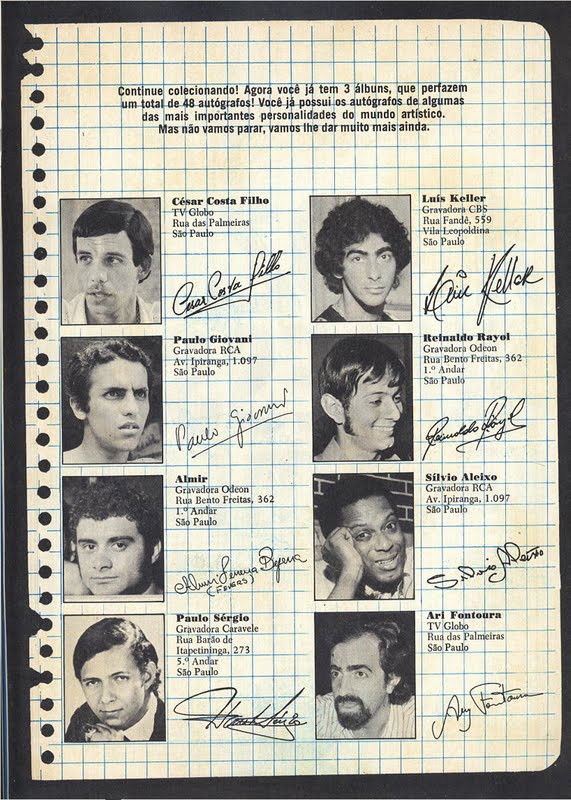 Continue colecionando! Agora você já tem 3 álbuns, que perfazem
um total de 48 autógrafos! Você já possui os autógrafos de algumas
das mais importantes personalidades do mundo artístico.
Mas não vamos parar, vamos lhe dar muito mais ainda.
César Costa Filho
TV Globo
Rua das Palmeiras
São Paulo
Cesar Costa Filho
Luís Keller
Gravadora CBS
Rua Fandé, 559
Vila Leopoldina
São Paulo
Luis Keller
Paulo Giovani
Gravadora RCA
Av. Ipiranga, 1.097
São Paulo
Paulo Giovani
Reinaldo Rayol
Gravadora Odeon
Rua Bento Freitas, 362
1.º Andar
São Paulo
Reinaldo Rayol
Almir
Gravadora Odeon
Rua Bento Freitas, 362
1.º Andar
São Paulo
Almir Ferreira Bezerra
(FEVERS)
Sílvio Aleixo
Gravadora RCA
Av. Ipiranga, 1.097
São Paulo
Silvio Aleixo
Paulo Sérgio
Gravadora Caravele
Rua Barão de
Itapetininga, 273
5.º Andar
São Paulo
Ari Fontoura
TV Globo
Rua das Palmeiras
São Paulo
Ary Fontoura